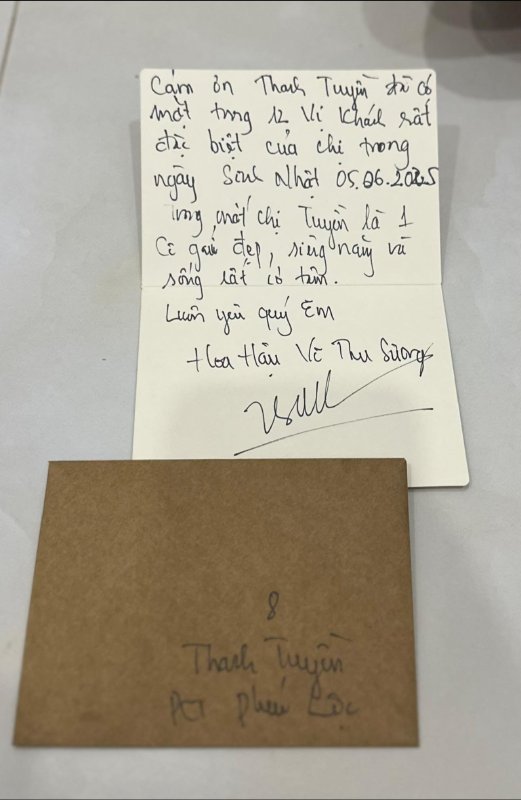 Cảm ơn Thanh Tuyền đã có
mặt trong 12 Vị khách rất
đặc biệt của chị trong
ngày Sinh Nhật 05.06.2025
Trong mắt chị Tuyền là 1
Cô gái đẹp, siêng năng và
sống rất có tâm.
Luôn yêu quý Em
Hoa Hậu Võ Thu Sương
8
Thanh Tuyền
Phú Lộc